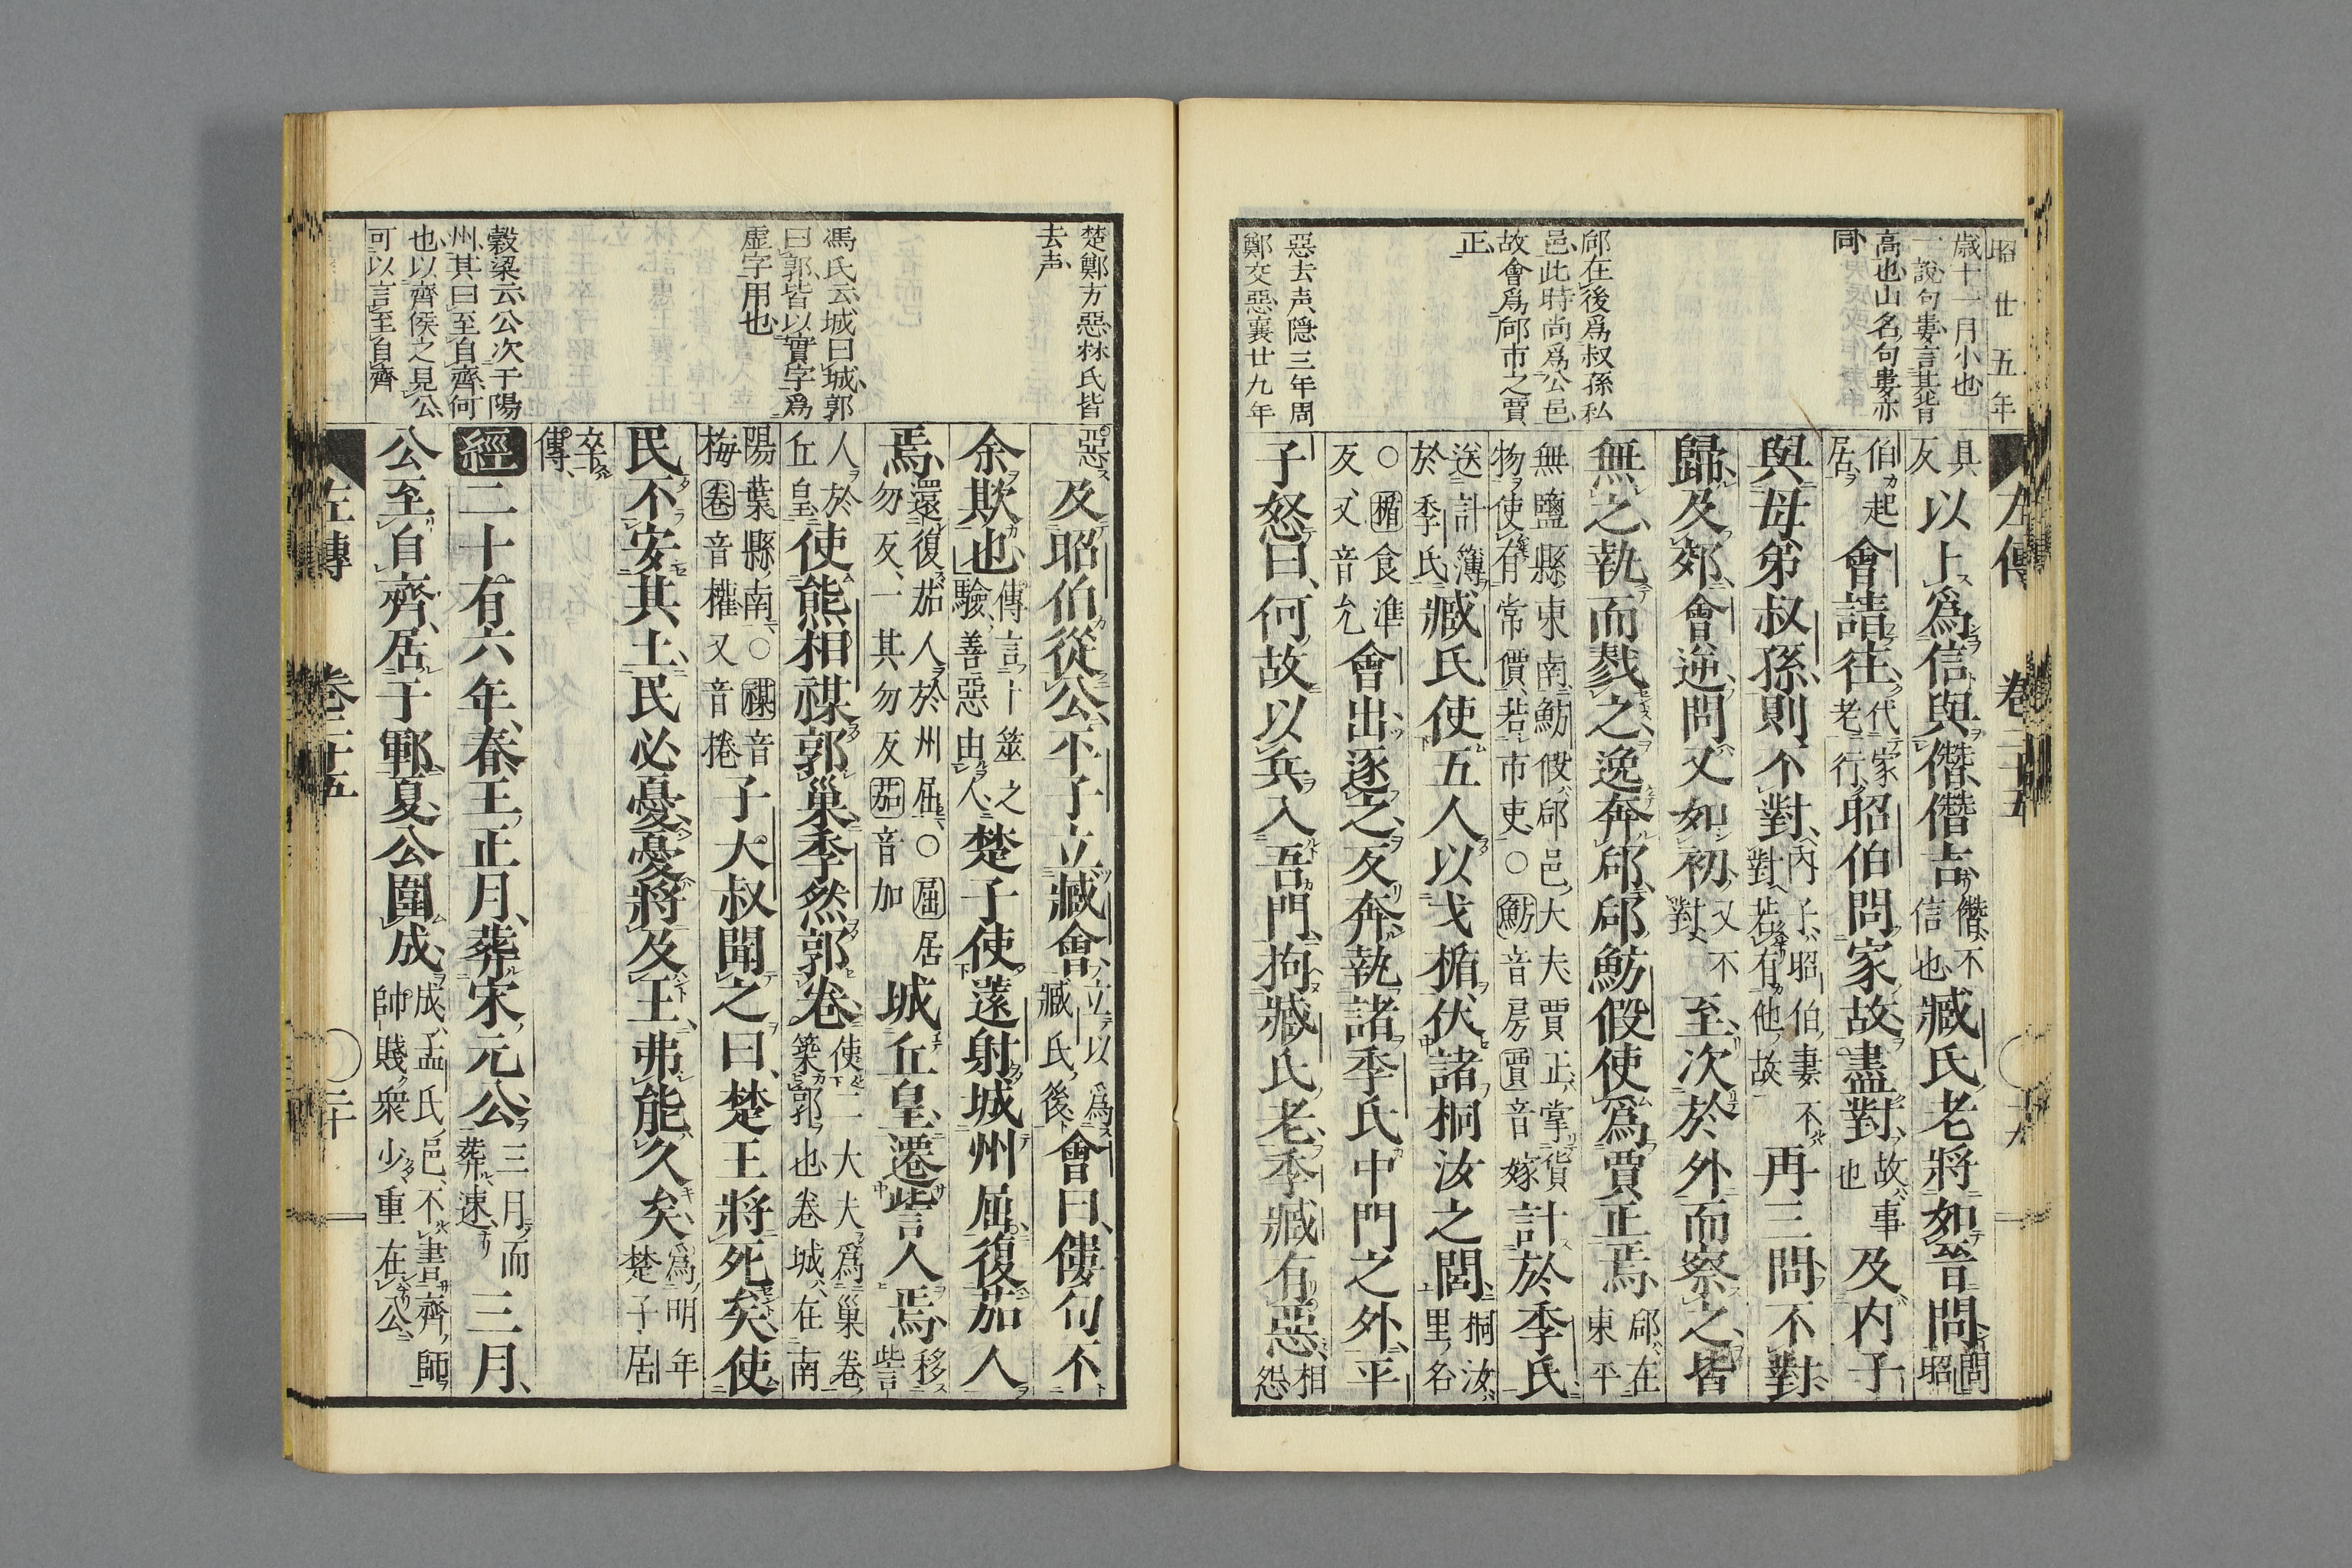 昭廿五年
歲十一月小也
一說句婁言其背
高也山名句婁亦
同
郈在後爲叔孫私
邑此時尚爲公邑
故會爲郈市之賈
正
惡去声隱三年周
鄭交惡襄廿九年
左傳 卷二十五 十九
具反以上爲信與僭僭吉僭不信也臧氏老將如晉問問昭
伯起居會請往代家老行昭伯問家故盡對故事也及內子
與母弟叔孫則不對內子昭伯妻不對若有他故再三問不對
歸及郊會逆問又如初又不對至次於外而察之皆
無之執而戮之逸奔郈郈魴假使爲賈正焉郈在東平
無鹽縣東南魴假郈邑大夫賈正掌貨物使有常價若市吏○魴音房賈音嫁計於季氏
送計簿於季氏臧氏使五人以戈楯伏諸桐汝之閭桐汝里名
○楯食準反又音允會出逐之反奔執諸季氏中門之外平
子怒曰何故以兵入吾門拘臧氏老季臧有惡相怨
楚鄭方惡林氏皆
去声
馮氏云城曰城郭
曰郭皆以實字爲
虛字用也
穀梁云公次于陽
州其曰至自齊何
也以齊侯之見公
可以言至自齊
惡及昭伯從公平子立臧會立以爲臧氏後會曰僂句不
余欺也傳言卜筮之驗善惡由人楚子使薳射城州屈復茄人
焉還復茄人於州屈○屈居勿反一其勿反茄音加城丘皇遷訾人焉移訾
人於丘皇使熊相禖郭巢季然郭卷使二大夫爲巢卷築郭也卷城在南
陽葉縣南○禖音梅卷音權又音捲子大叔聞之曰楚王將死矣使
民不安其土民必憂憂將及王弗能久矣爲明年楚子居
卒傳
經二十有六年春王正月葬宋元公三月而葬速三月
公至自齊居于鄆夏公圍成成孟氏邑不書齊師帥賤衆少重在公
左傳 卷二十五 二十